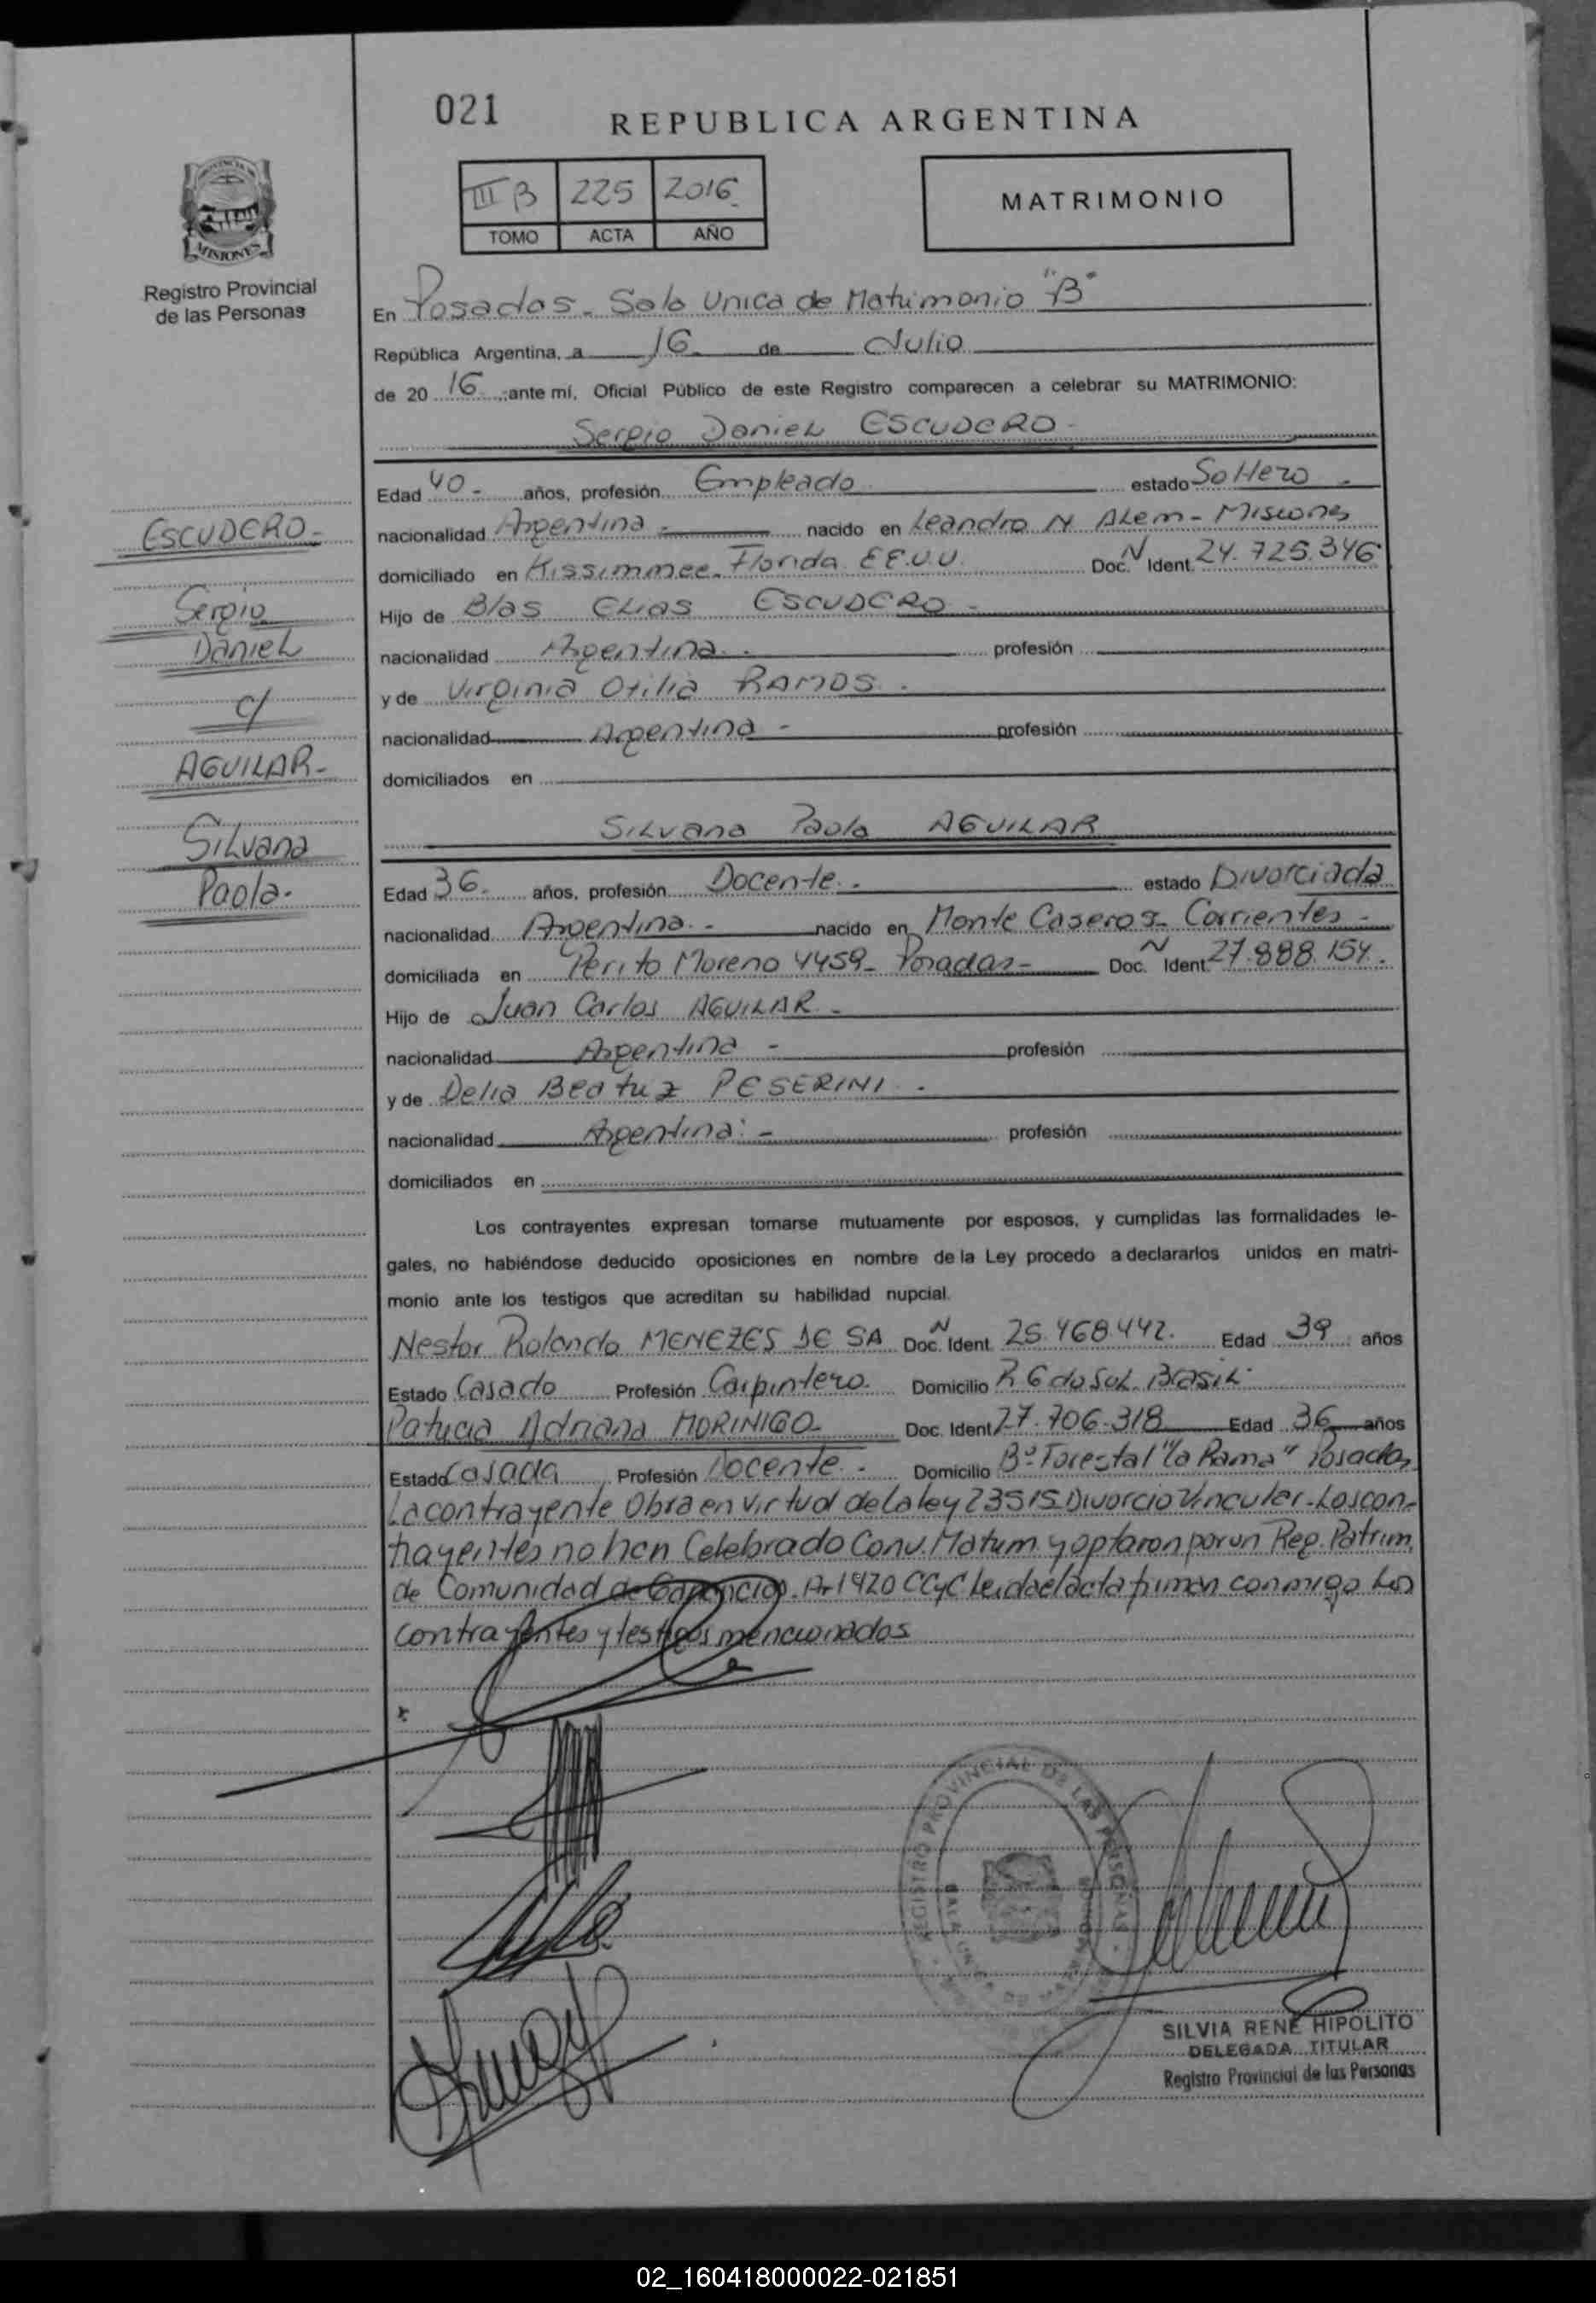 021
REPUBLICA ARGENTINA
III B 225 2016
TOMO ACTA AÑO
MATRIMONIO
MISIONES
Registro Provincial
de las Personas
En Posadas - Sala Unica de Matrimonio "B"
República Argentina, a 16 de Julio
de 20 16 ante mí, Oficial Público de este Registro comparecen a celebrar su MATRIMONIO:
Sergio Daniel ESCUDERO -
Edad 40 - años, profesión Empleado estado Soltero -
nacionalidad Argentina - nacido en Leandro N Alem - Misiones
domiciliado en Kissimmee - Florida EE.UU. Doc. N Ident. 24.725.346
Hijo de Blas Elias ESCUDERO -
nacionalidad Argentina - profesión
y de Virginia Otilia RAMOS -
nacionalidad Argentina - profesión
domiciliados en
ESCUDERO -
Sergio
Daniel
c/
AGUILAR -
Silvana
Paola -
Silvana Paola AGUILAR
Edad 36 - años, profesión Docente - estado Divorciada
nacionalidad Argentina - nacido en Monte Caseros - Corrientes -
domiciliada en Perito Moreno 4459 - Posadas - Doc. N Ident. 27.888.154.
Hijo de Juan Carlos AGUILAR -
nacionalidad Argentina - profesión
y de Delia Beatriz PESERINI -
nacionalidad Argentina - profesión
domiciliados en
Los contrayentes expresan tomarse mutuamente por esposos, y cumplidas las formalidades le-
gales, no habiéndose deducido oposiciones en nombre de la Ley procedo a declararlos unidos en matri-
monio ante los testigos que acreditan su habilidad nupcial.
Nestor Rolando MENEZES DE SA Doc. N Ident. 25.468.442. Edad 39 años
Estado Casado Profesión Carpintero. Domicilio R G do Sul. Brasil.
Patricia Adriana MORINIGO Doc. Ident 27.706.318 Edad 36 años
Estado Casada Profesión Docente - Domicilio Bº Forestal "La Rama" Posadas
La contrayente Obra en virtud de la ley 23515 Divorcio Vincular. Los con-
trayentes no han Celebrado Conv. Matrim y optaron por un Reg. Patrim.
de Comunidad de Ganancias. Ar 1420 CCyC Leida el acta firman conmigo los
contrayentes y testigos mencionados
REGISTRO PROVINCIAL DE LAS PERSONAS
SILVIA RENE HIPOLITO
DELEGADA TITULAR
Registro Provincial de las Personas
02_160418000022-021851